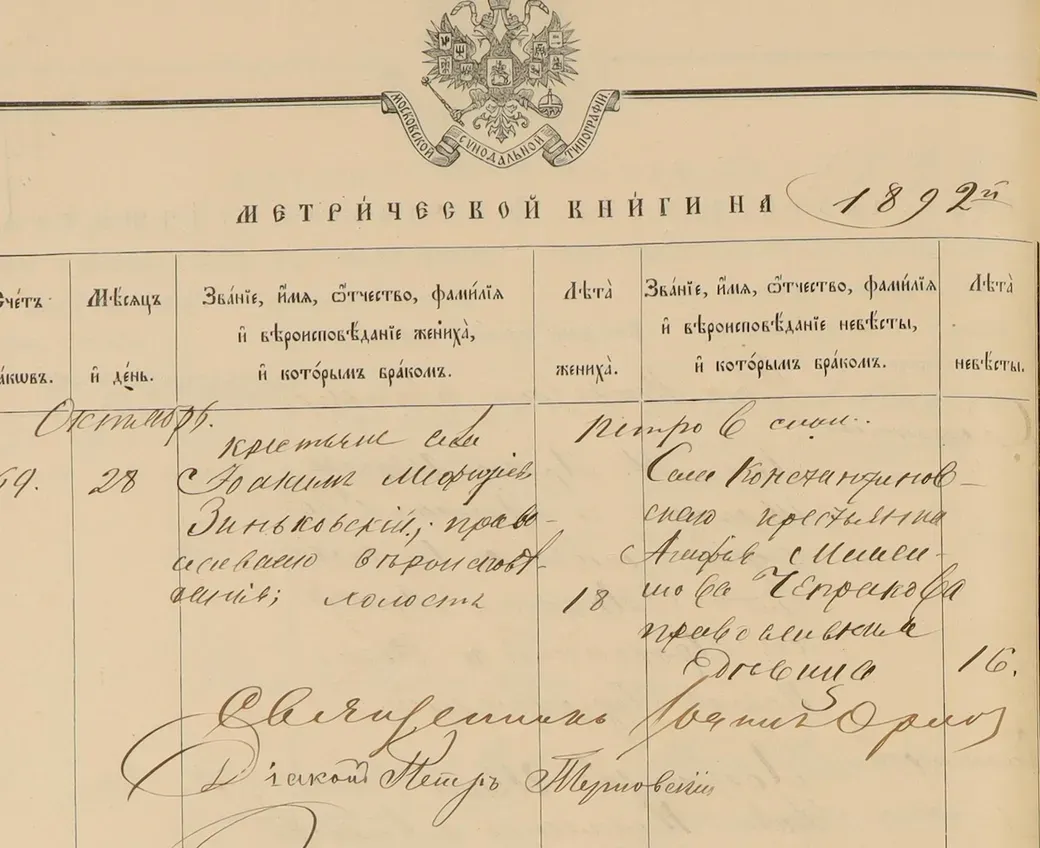 МОСКОВСКОЙ СѴНОДАЛЬНОЙ ТИПОГРАФІИ.
МЕТРИ́ЧЕСКОЙ КНИ́ГИ НА 1892й
Счéтъ
ра́кωвъ.
Мѣ́сяцъ
и҆ де́нь.
Зва́нїе, и҆́мя, ѻ҆́тчество, фами́лїя
и҆ вѣроисповѣ́данїе жениха̀,
и҆ кото́рымъ бра́комъ.
Лѣта̀
жениха̀.
Зва́нїе, и҆́мя, ѻ҆́тчество, фами́лїя
и҆ вѣроисповѣ́данїе невѣ́сты,
и҆ кото́рымъ бра́комъ.
Лѣта̀
невѣ́сты.
Октябрь.
69.
28
Іоакимъ
Зиньковскій; право-
славнаго вѣроисповѣ-
данія; холостъ
18
Села Константинов-
скаго крестьянка
Агафья
Чепракова
православная
Дѣвица
16.
Священникъ Іоаннъ Орлов
Діаконъ Петръ Терновскій